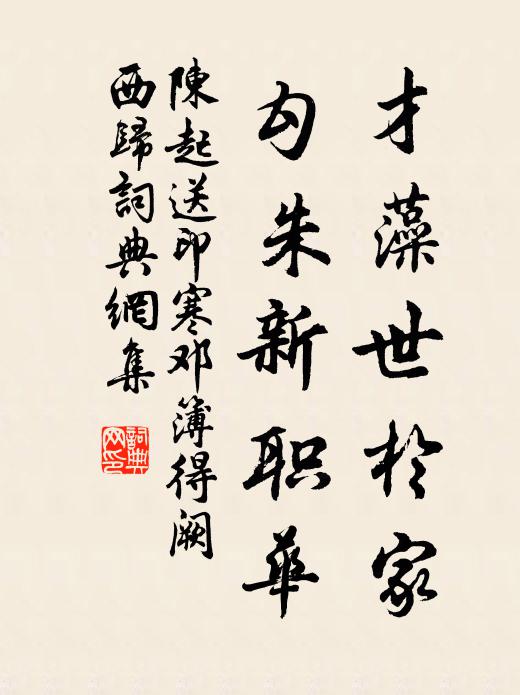 才藻世於家
勾朱新职華
陳起送印寒邓簿得阙
西歸詞典網集
詞典
网印